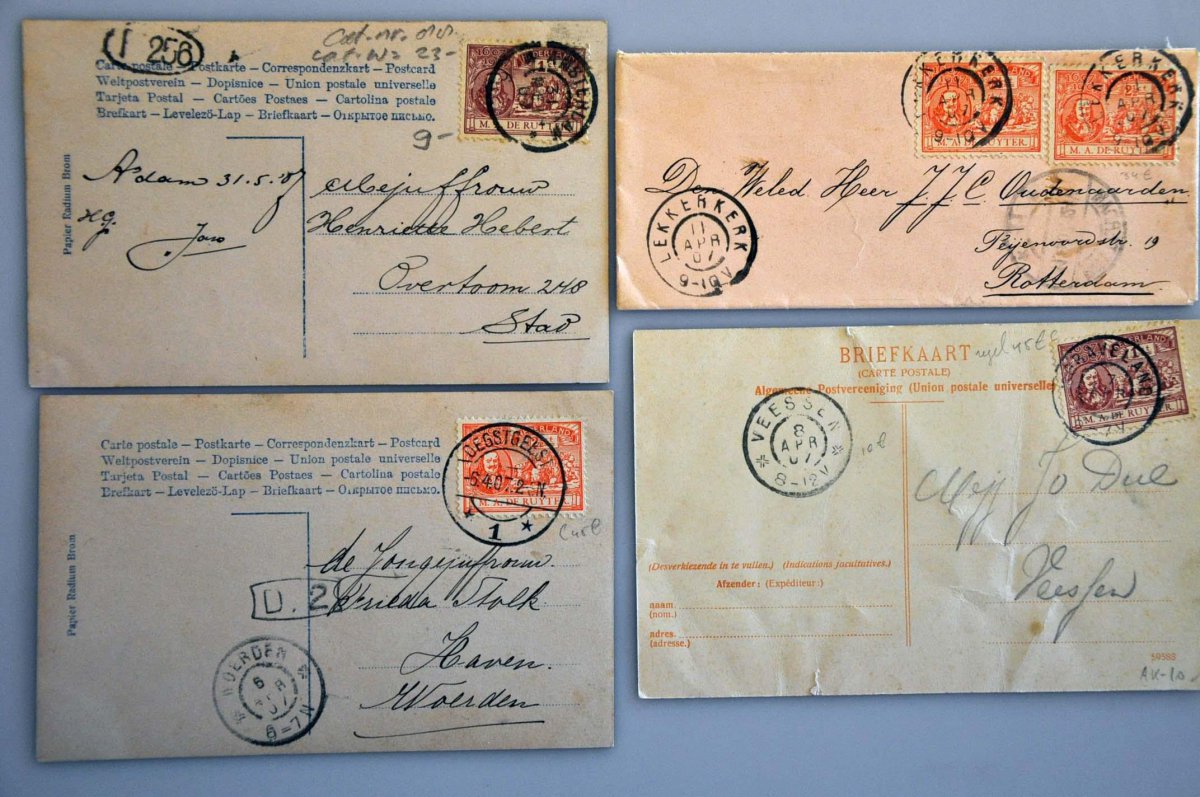 1 256
Cat. nr.
23-
Carte postale – Postkarte – Correspondenzkart – Postcard
Weltpostverein – Dopisnice – Union postale universelle
Tarjeta Postal – Cartões Postaes – Cartolina postale
Brefkart – Levelező-Lap – Briefkaart – Открытое письмо.
9-
M. A. DE RUYTER.
Papier Radium Brom
A'dam 31.5.07
Mejuffrouw
Henriette Hebert
Overtoom 248
Stad
LEKKERKERK
11 APR 07
LEKKERKERK
11 APR 07
M. A. DE RUYTER.
M. A. DE RUYTER.
Den Weled Heer J. J. C. Oudenaarden
Feijenoordstr. 19
Rotterdam
LEKKERKERK
11
APR
07
9-10V
Carte postale – Postkarte – Correspondenzkart – Postcard
Weltpostverein – Dopisnice – Union postale universelle
Tarjeta Postal – Cartões Postaes – Cartolina postale
Brefkart – Levelező-Lap – Briefkaart – Открытое письмо.
OEGSTGEEST
-6.4.07.2-N.
1
M. A. DE RUYTER.
Papier Radium Brom
de Jongejuffrouw.
D. 2
Frieda Stolk
Haven.
Woerden
WOERDEN
6
07
6-7N
BRIEFKAART
(CARTE POSTALE)
Algemeene Postvereeniging (Union postale universelle)
M. A. DE RUYTER.
VEESSEN
8
APR
07
8-12V
10€
Mej Jo Duel
Veessen
(Desverkiezende in te vullen.) (Indications facultatives.)
Afzender: (Expéditeur:)
naam
(nom.)
adres.
(adresse.)
59588
AK-10